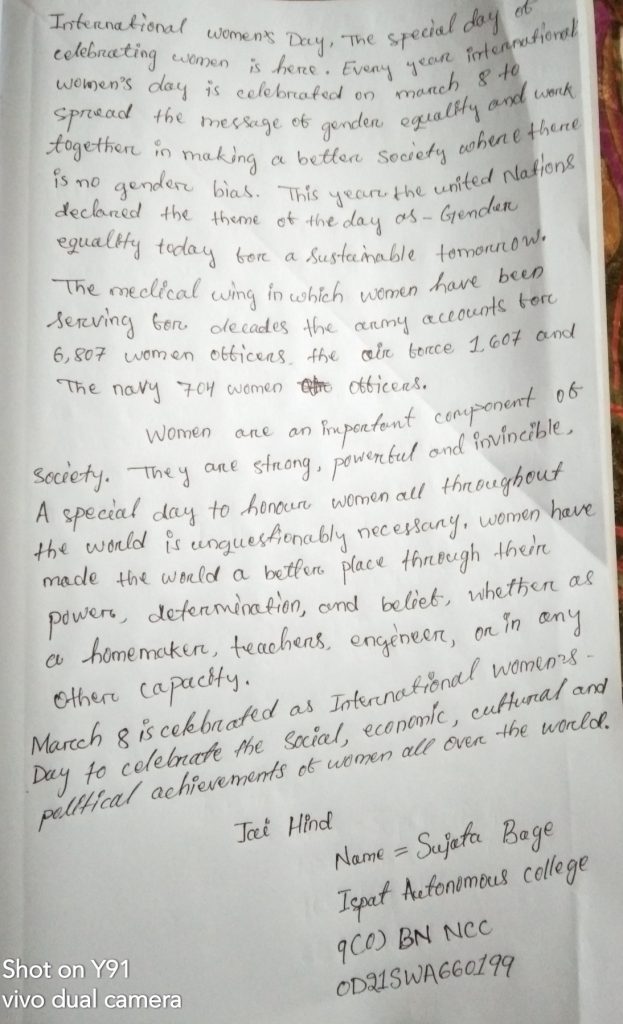 International women's Day, The special day of
celebrating women is here. Every year international
women's day is celebrated on march 8 to
spread the message of gender equality and work
together in making a better society where there
is no gender bias. This year the united Nations
declared the theme of the day as - Gender
equality today for a Sustainable tomorrow.
The medical wing in which women have been
serving for decades the army accounts for
6,807 women officers. the air force 1,607 and
The navy 704 women officers.
Women are an important component of
Society. They are strong, powerful and invincible.
A special day to honour women all throughout
the world is unquestionably necessary. women have
made the world a better place through their
power, determination, and belief, whether as
a homemaker, teachers, engineer, or in any
other capacity.
March 8 is celebrated as International women's -
Day to celebrate the Social, economic, cultural and
political achievements of women all over the world.
Jai Hind
Name = Sujata Bage
Ispat Autonomous college
9(O) BN NCC
OD21SWA660199
Shot on Y91
vivo dual camera